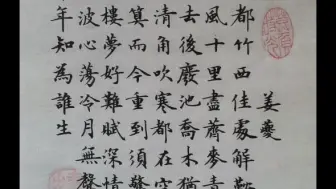 姜夔
都竹西佳處解鞍
風十里盡薺麥青
去後廢池喬木猶
清角吹寒都在空
算而今重到須驚
樓夢好難賦深情
波心蕩冷月無聲
年知為誰生